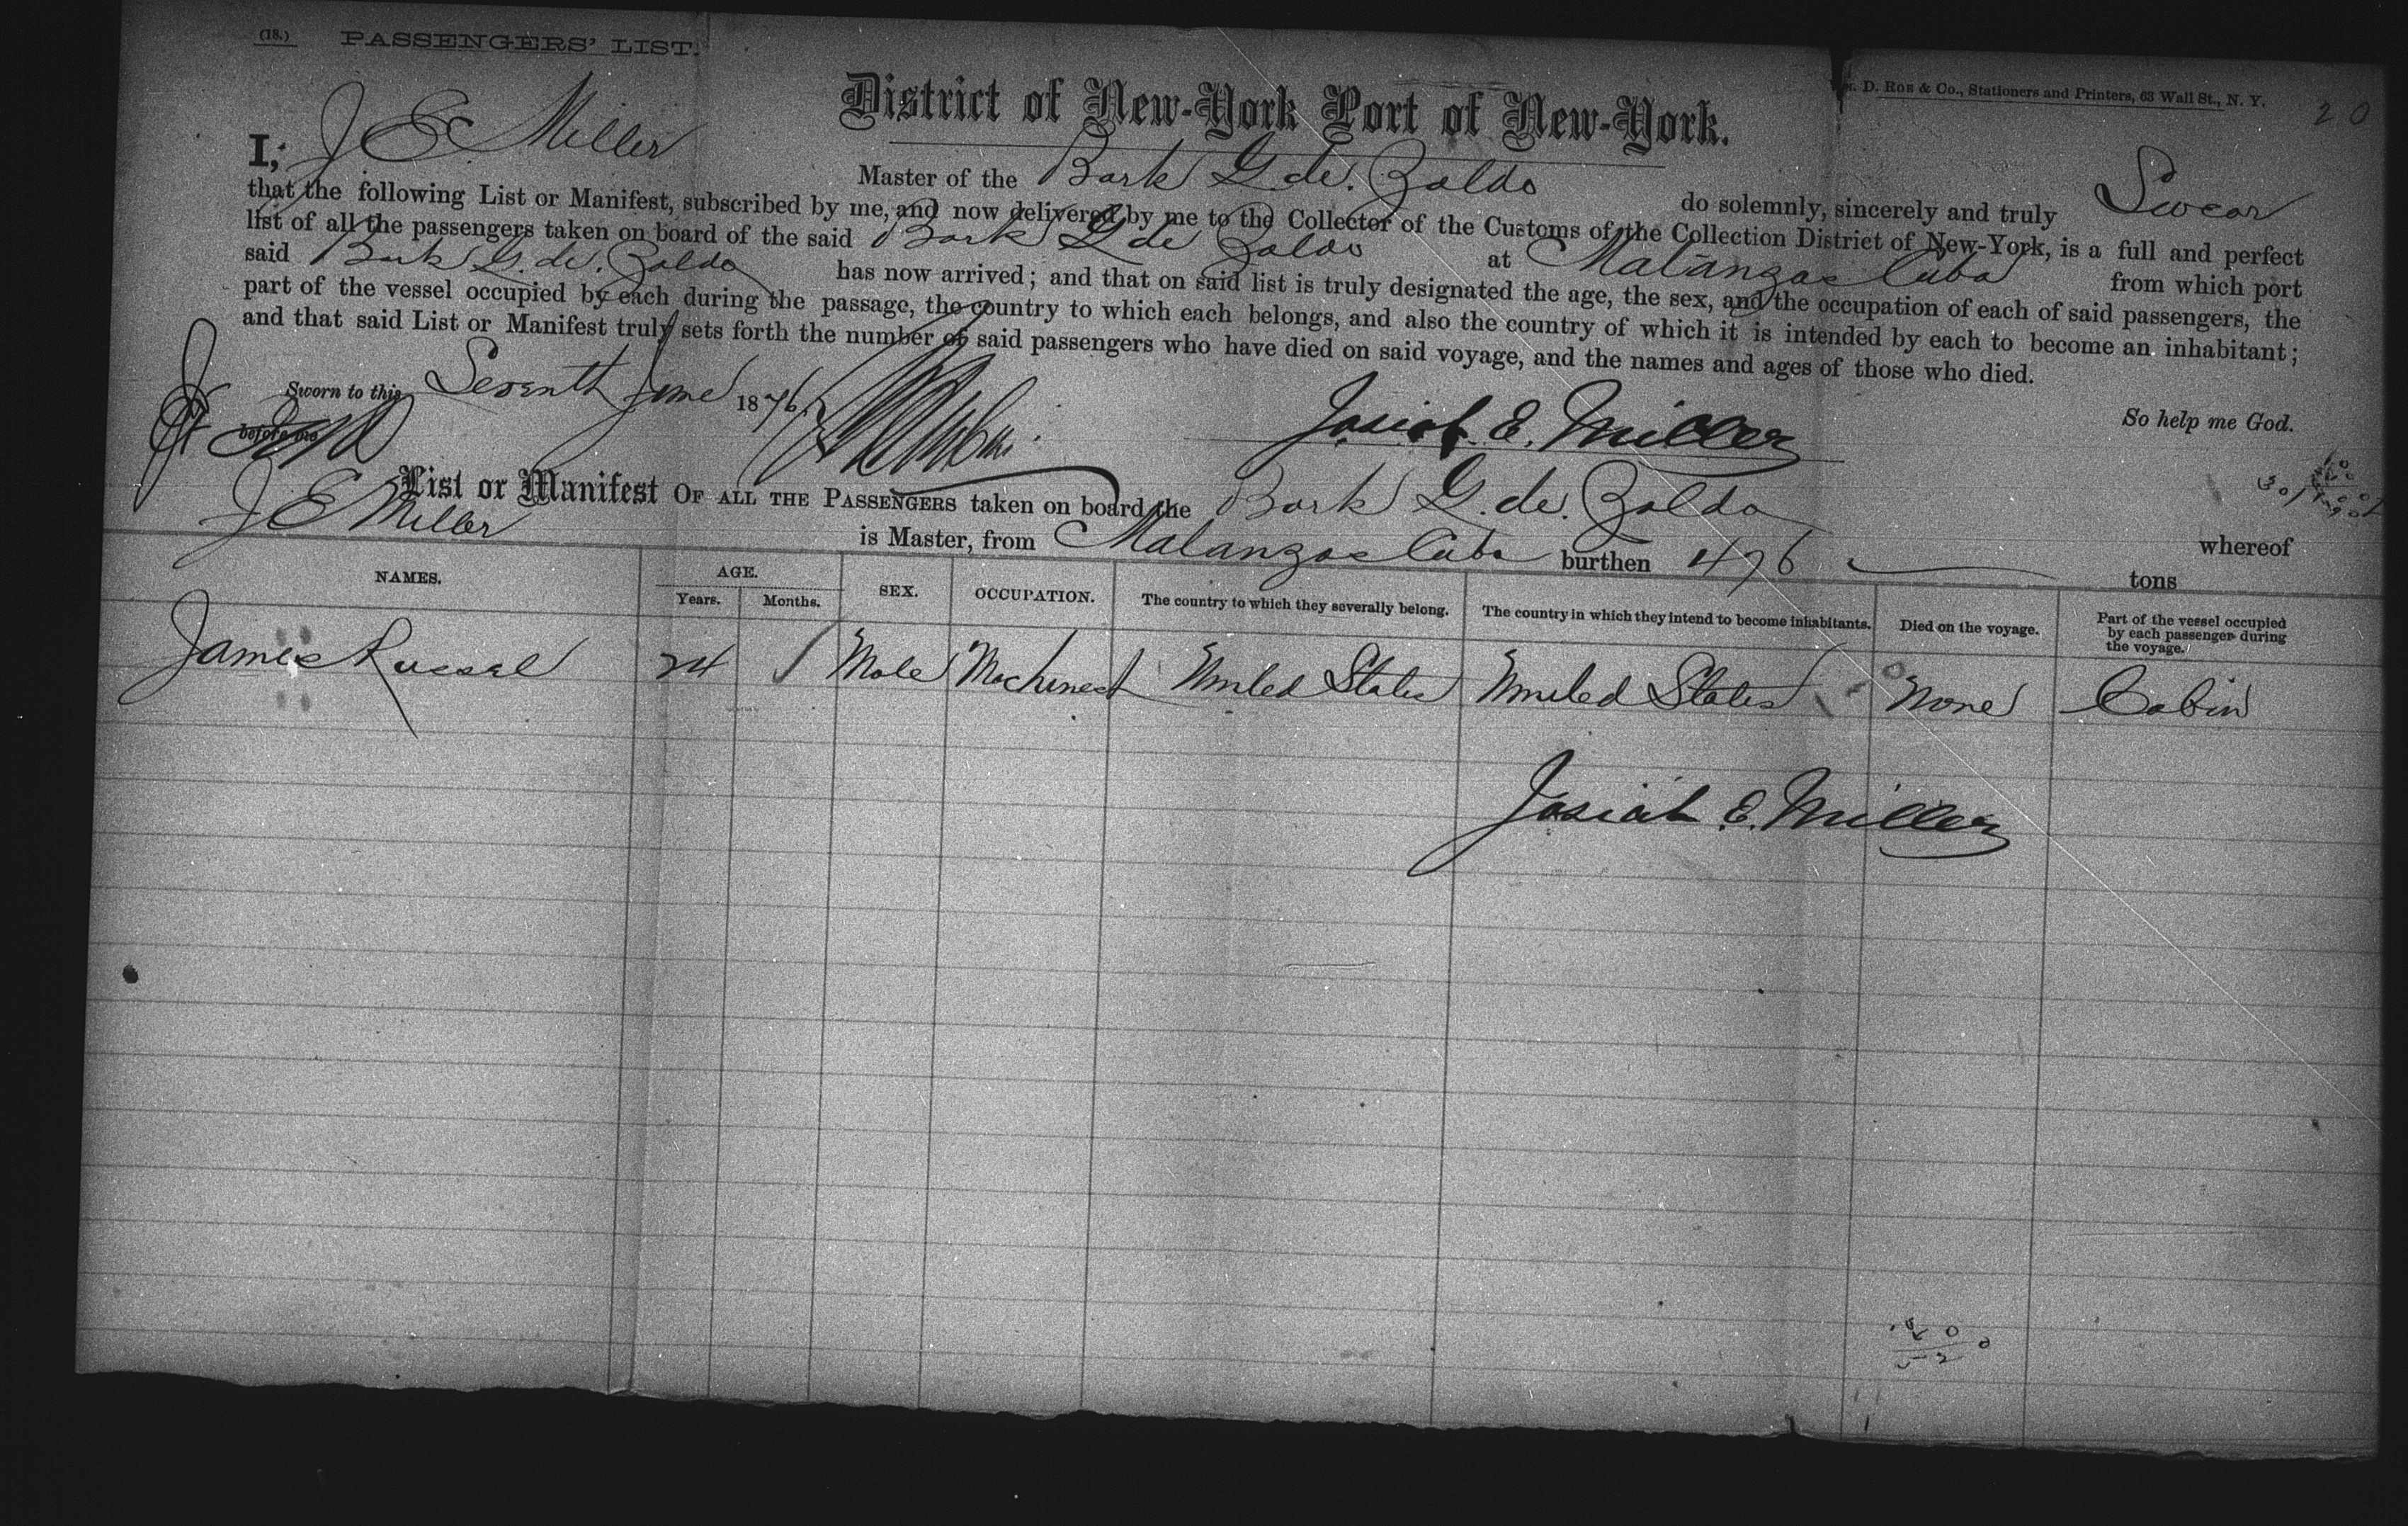 (18.) PASSENGERS' LIST.
D. Roe & Co., Stationers and Printers, 63 Wall St., N. Y.
20
District of New-York Port of New-York.
I, J E Miller Master of the Bark G. de. Zaldo do solemnly, sincerely and truly Swear
that the following List or Manifest, subscribed by me, and now delivered by me to the Collector of the Customs of the Collection District of New-York, is a full and perfect
list of all the passengers taken on board of the said Bark G de Zaldo at Matanzas Cuba from which port
said Bark G. de. Zaldo has now arrived; and that on said list is truly designated the age, the sex, and the occupation of each of said passengers, the
part of the vessel occupied by each during the passage, the country to which each belongs, and also the country of which it is intended by each to become an inhabitant;
and that said List or Manifest truly sets forth the number of said passengers who have died on said voyage, and the names and ages of those who died.
So help me God.
Sworn to this Seventh June 1876
before me
Josiah E. Miller
List or Manifest OF ALL THE PASSENGERS taken on board the Bark G. de. Zaldo whereof
J E Miller is Master, from Matanzas Cuba burthen 476 tons
NAMES. AGE. Years. Months. SEX. OCCUPATION. The country to which they severally belong. The country in which they intend to become inhabitants. Died on the voyage. Part of the vessel occupied by each passenger during the voyage.
James Russel 24 Male Machinest United States United States None Cabin
Josiah E. Miller